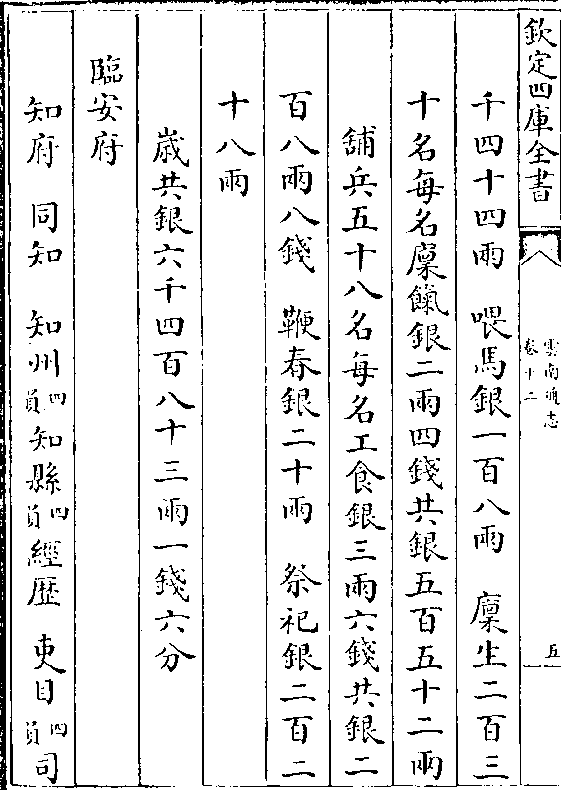 欽定四庫全書
雲南通志
卷十二
五
千四十四兩　喂馬銀一百八兩　廩生二百三
十名每名廩餼銀二兩四錢共銀五百五十二兩
舖兵五十八名每名工食銀三兩六錢共銀二
百八兩八錢　鞭春銀二十兩　祭祀銀二百二
十八兩
歲共銀六千四百八十三兩一錢六分
臨安府
知府　同知　知州四員知縣四員經歷　吏目四員司